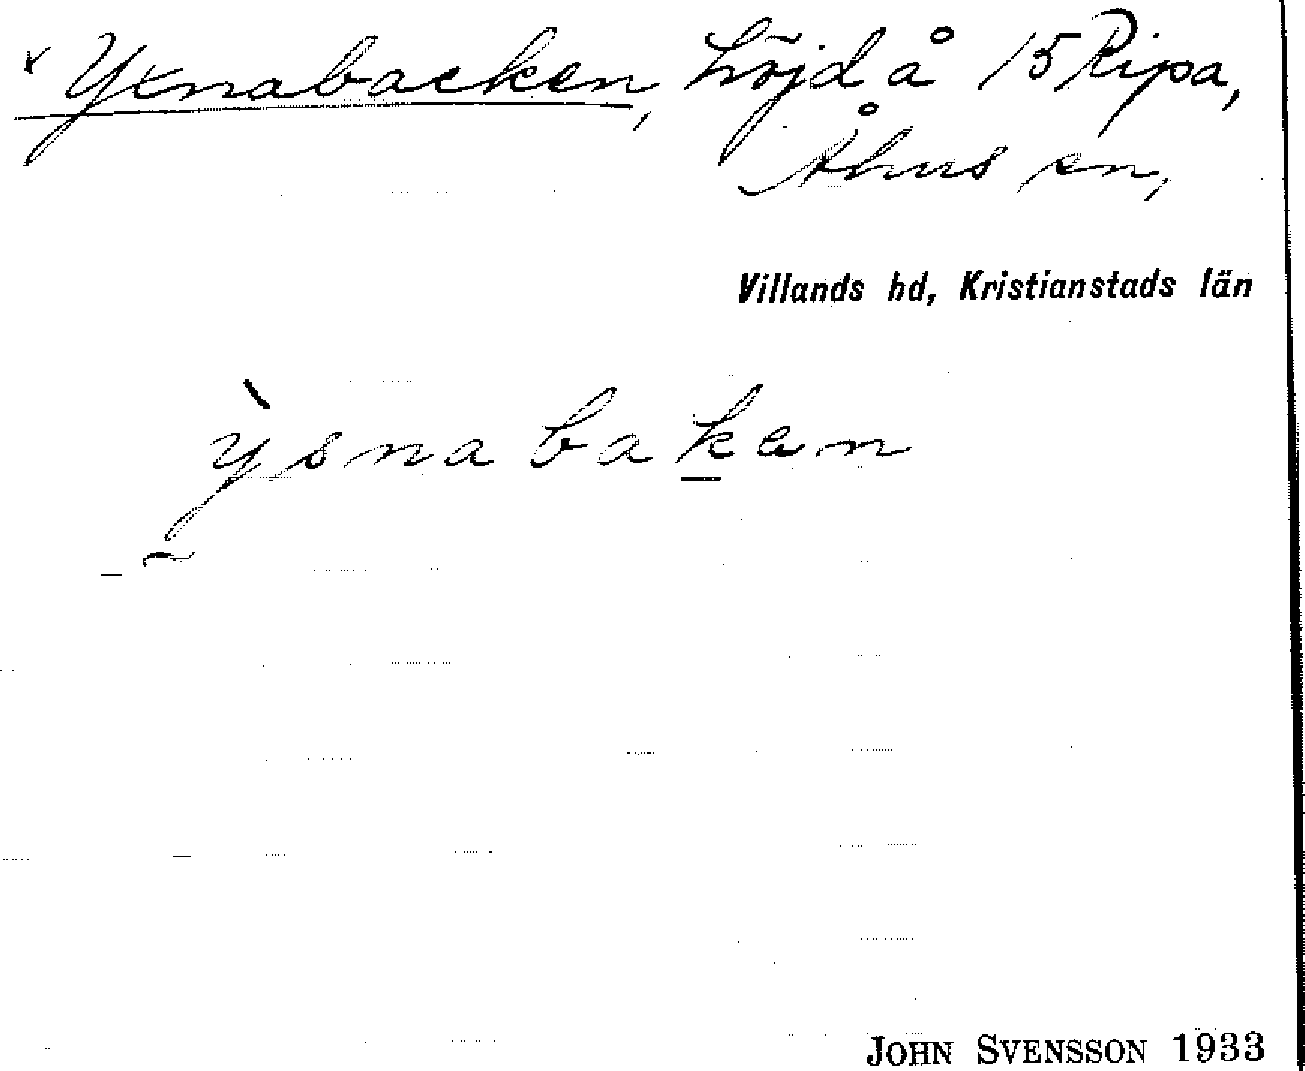 x Yxnabacken, höjd å 15 Ripa,
Åhus sn,
Villands hd, Kristianstads län
ỳsnabakan
JOHN SVENSSON 1933